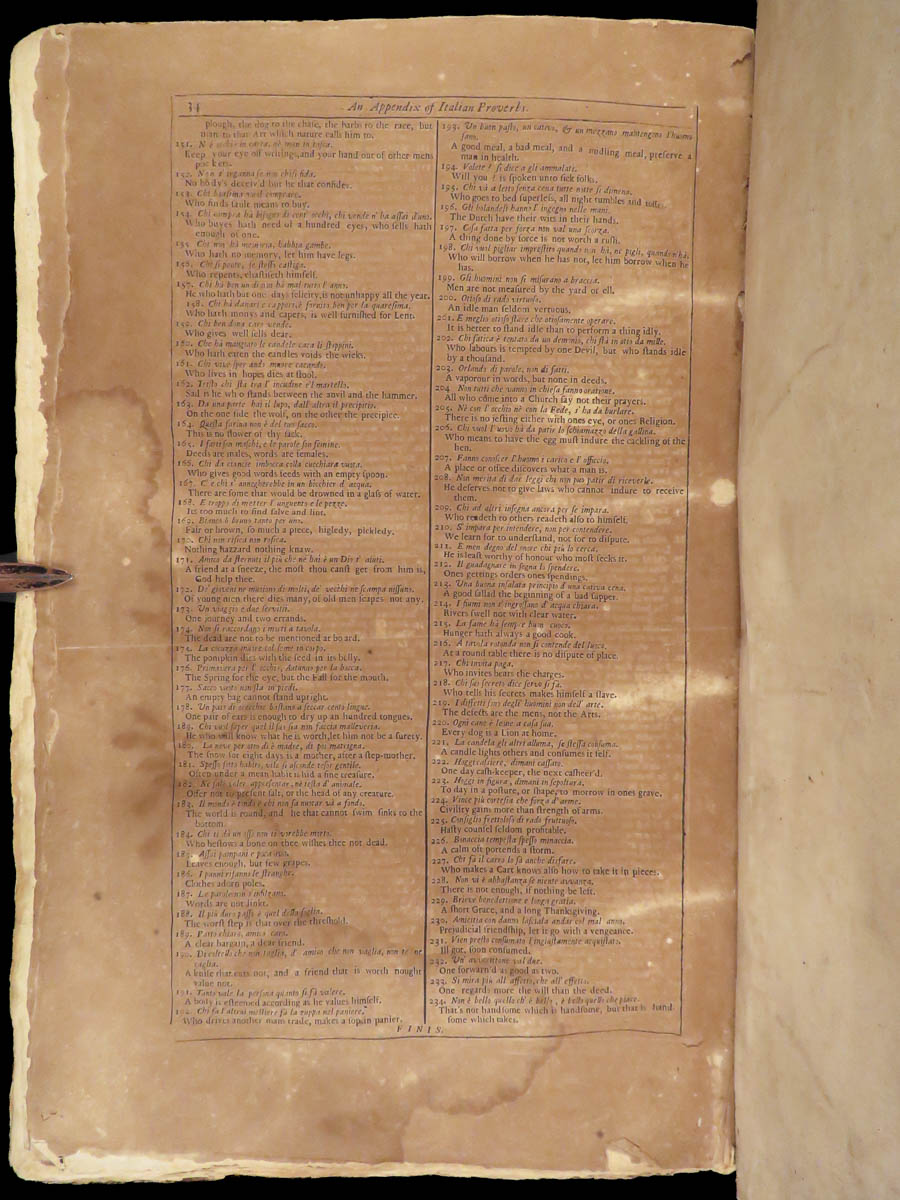 34
An Appendix of Italian Proverbs.
plough, the dog to the chase, the barb to the race, but
man to that Art which nature calls him to.
151. N è occhi in carta, nè man in tasca.
Keep your eye off writings, and your hand out of other mens
pockets.
152. Non s' inganna se non chi si fida.
No body's deceiv'd but he that confides.
153. Chi biasima vuol comprare.
Who finds fault means to buy.
154. Chi compra hà bisogno di cent' occhi, chi vende n' ha assai d'uno.
Who buyes hath need of a hundred eyes, who sells hath
enough of one.
155. Che non hà memoria, habbia gambe.
Who hath no memory, let him have legs.
156. Chi si pente, se stesso castiga.
Who repents, chastiseth himself.
157. Chi hà ben un dì non hà mal tutto l' anno.
He who hath but one days felicity, is not unhappy all the year.
158. Chi hà danari e capperi, è fornito ben per la quaresima.
Who hath monys and capers, is well furnished for Lent.
159. Chi ben dona caro vende.
Who gives well sells dear.
160. Che hà mangiato le candele caca li stoppini.
Who hath eaten the candles voids the wicks.
161. Chi vive sperando muore cacando.
Who lives in hopes dies at stool.
162. Tristo chi sta tra l' incudine e'l martello.
Sad is he who stands between the anvil and the hammer.
163. Da una parte hai il lupo, dall' altra il precipitio.
On the one side the wolf, on the other the precipice.
164. Questa farina non è del tuo sacco.
This is no flower of thy sack.
165. I fatti son maschi, e le parole son femine.
Deeds are males, words are females.
166. Chi da ciancie imbocca colla cucchiara vuota.
Who gives good words feeds with an empty spoon.
167. C' e chi s' annegherebbe in un bicchier d' acqua.
There are some that would be drowned in a glass of water.
168. E troppo di metter l' unguento e le pezze.
Its too much to find salve and lint.
169. Bianco è bruno tanto per uno.
Fair or brown, so much a piece, higledy, pickledy.
170. Chi non risica non rosica.
Nothing hazzard nothing knaw.
171. Amico da sternuti il più che nè hai è un Dio t' aiuti.
A friend at a sneeze, the most thou canst get from him is,
God help thee.
172. De' gioveni ne muoiono di molti, de' vecchi ne scampa nissuno.
Of young men there dies many, of old men scapes not any.
173. Un viaggio e due servitii.
One journey and two errands.
174. Non si raccordano i morti a tavola.
The dead are not to be mentioned at board.
175. La cucuzza muore col seme in corpo.
The pompkin dies with the seed in its belly.
176. Primavera per l' occhio, Autunno per la bocca.
The Spring for the eye, but the Fall for the mouth.
177. Sacco vuoto non sta in piedi.
An empty bag cannot stand upright.
178. Un pair di orecchie bastano a seccar cento lingue.
One pair of ears is enough to dry up an hundred tongues.
189. Chi vuol saper quel il suo sia non faccia malleveria.
He who will know what he is worth, let him not be a surety.
180. La neve per otto dì è madre, di più matrigna.
The snow for eight days is a mother, after a step-mother.
181. Spesso sotto habito, vile si asconde tesor gentile.
Often under a mean habit is hid a fine creature.
182. Ne sale voler appresentar, ne testa d' animale.
Offer not to present salt, or the head of any creature.
183. Il mondo è tondo è chi non sa nuotar và a fondo.
The world is round, and he that cannot swim sinks to the
bottom.
184. Chi ti dà un osso non ti verebbe morto.
Who bestows a bone on thee wishes thee not dead.
185. Assai pampani e poca uva.
Leaves enough, but few grapes.
186. I panni rifanno le stanghe.
Clothes adorn poles.
187. Le parole non s'infilzano.
Words are not linkt.
188. Il più duro passo è quel della soglia.
The worst step is that over the threshold.
189. Patto chiaro, amico caro.
A clear bargain, a dear friend.
190. Di coltello che non taglia, d' amico che non vaglia, non te ne
caglia.
A knife that cuts not, and a friend that is worth nought
value not.
191. Tanto vale la persona quanto si fà valere.
A body is esteemed according as he values himself.
192. Chi fà l'altrui mestiere fà la zuppa nel paniere.
Who drives another mans trade, makes a sop in panier.
193. Un buon pasto, un cativo, & un mezzano mantengono l'huomo
sano.
A good meal, a bad meal, and a midling meal, preserve a
man in health.
194. Volete? si dice a gli ammalati.
Will you? is spoken unto sick folks.
195. Chi và a letto senza cena tutte notte si dimena.
Who goes to bed superless, all night tumbles and tosses.
196. Gli holandesi hanno l' ingegno nelle mani.
The Dutch have their wits in their hands.
197. Cosa fatta per forza non val una scorza.
A thing done by force is not worth a rush.
198. Chi vuol pigliar imprestito quando non hà, ne pigli, quando n'hà.
Who will borrow when he has not, let him borrow when he
has.
199. Gli huomini non si misurano a braccia.
Men are not measured by the yard or ell.
200. Otioso di rado virtuoso.
An idle man seldom vertuous.
201. E meglio otioso stare che otiosamente operare.
It is better to stand idle than to perform a thing idly.
202. Chi fatica è tentato da un demonio, chi stà in otio da mille.
Who labours is tempted by one Devil, but who stands idle
by a thousand.
203. Orlando di parole, non di fatti.
A vaporour in words, but none in deeds.
204. Non tutti che vanno in chiesa fanno oratione.
All who come into a Church say not their prayers.
205. Nè con l' occhio nè con la Fede, s' ha da burlare.
There is no jesting either with ones eye, or ones Religion.
206. Chi vuol l'uovo hà da patir lo schiamazzo della gallina.
Who means to have the egg must indure the cackling of the
hen.
207. Fanno conoscer l'huomo i carico e l' officio.
A place or office discovers what a man is.
208. Non merita di dar leggi chi non puo patir di riceverle.
He deserves not to give laws who cannot indure to receive
them.
209. Chi ad altri insegna ancora per se impara.
Who readeth to others readeth also to himself.
210. S' impara per intendere, non per contendere.
We learn for to understand, not for to dispute.
211. E men degno del onore chi più lo cerca.
He is least worthy of honour who most seeks it.
212. Il guadagnare in segna lo spendere.
Ones gettings orders ones spendings.
213. Una buona insalata principio d' una cativa cena.
A good sallad the beginning of a bad supper.
214. I fiumi non s'ingrossano d' acqua chiara.
Rivers swell not with clear water.
215. La fame hà sempre buon cuoco.
Hunger hath always a good cook.
216. A tavola rotonda non si contende del luoco.
At a round table there is no dispute of place.
217. Chi invita paga.
Who invites bears the charges.
218. Chi suo secreto dice servo si fà.
Who tells his secrets makes himself a slave.
219. I diffetti sono degli' huomini non dell' arte.
The defects are the mens, not the Arts.
220. Ogni cane è leone a casa sua.
Every dog is a Lion at home.
221. La candela gli altri alluma, se stessa consuma.
A candle lights others and consumes it self.
222. Hoggi cassiere, dimani cassato.
One day cash-keeper, the next casheer'd.
223. Hoggi in figura, dimani in sepoltura.
To day in a posture, or shape, to morrow in ones grave.
224. Vince più cortesia che forza d' arme.
Civility gaim more than strength of arms.
225. Consiglio frettoloso di rado fruttuoso.
Hasty counsel seldom profitable.
226. Bonaccia tempesta spesso minaccia.
A calm oft portends a storm.
227. Chi fà il carro lo sà anche disfare.
Who makes a Cart knows also how to take it in pieces.
228. Non vi è abbastanza se niente avvanza.
There is not enough, if nothing be left.
229. Brieve benedettione e longa gratia.
A short Grace, and a long Thanksgiving.
230. Amicitia con danno lasciala andar col mal' anno.
Prejudicial friendship, let it go with a vengeance.
231. Vien presto consumato l'ingiustamente acquistato.
Ill got, soon consumed.
232. Un' avvertitone val due.
One forwarn'd as good as two.
233. Si mira più all' affetto, che all' effetto.
One regards more the will than the deed.
234. Non è bello quello ch' è bello, è bello quello che piace.
That's not handsome which is handsome, but that is hand-
some which takes.
FINIS.